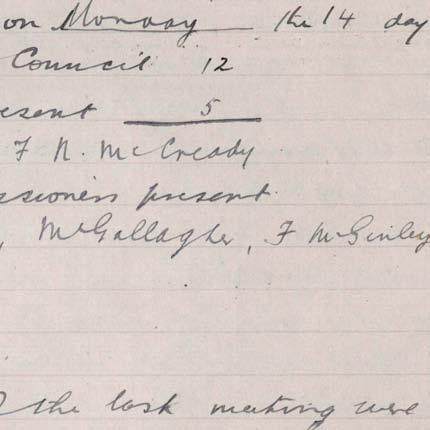 on Monday the 14 day
Council 12
esent 5
F N. McCready
ssioners present.
, McGallagher, F McGinley
the last meeting were